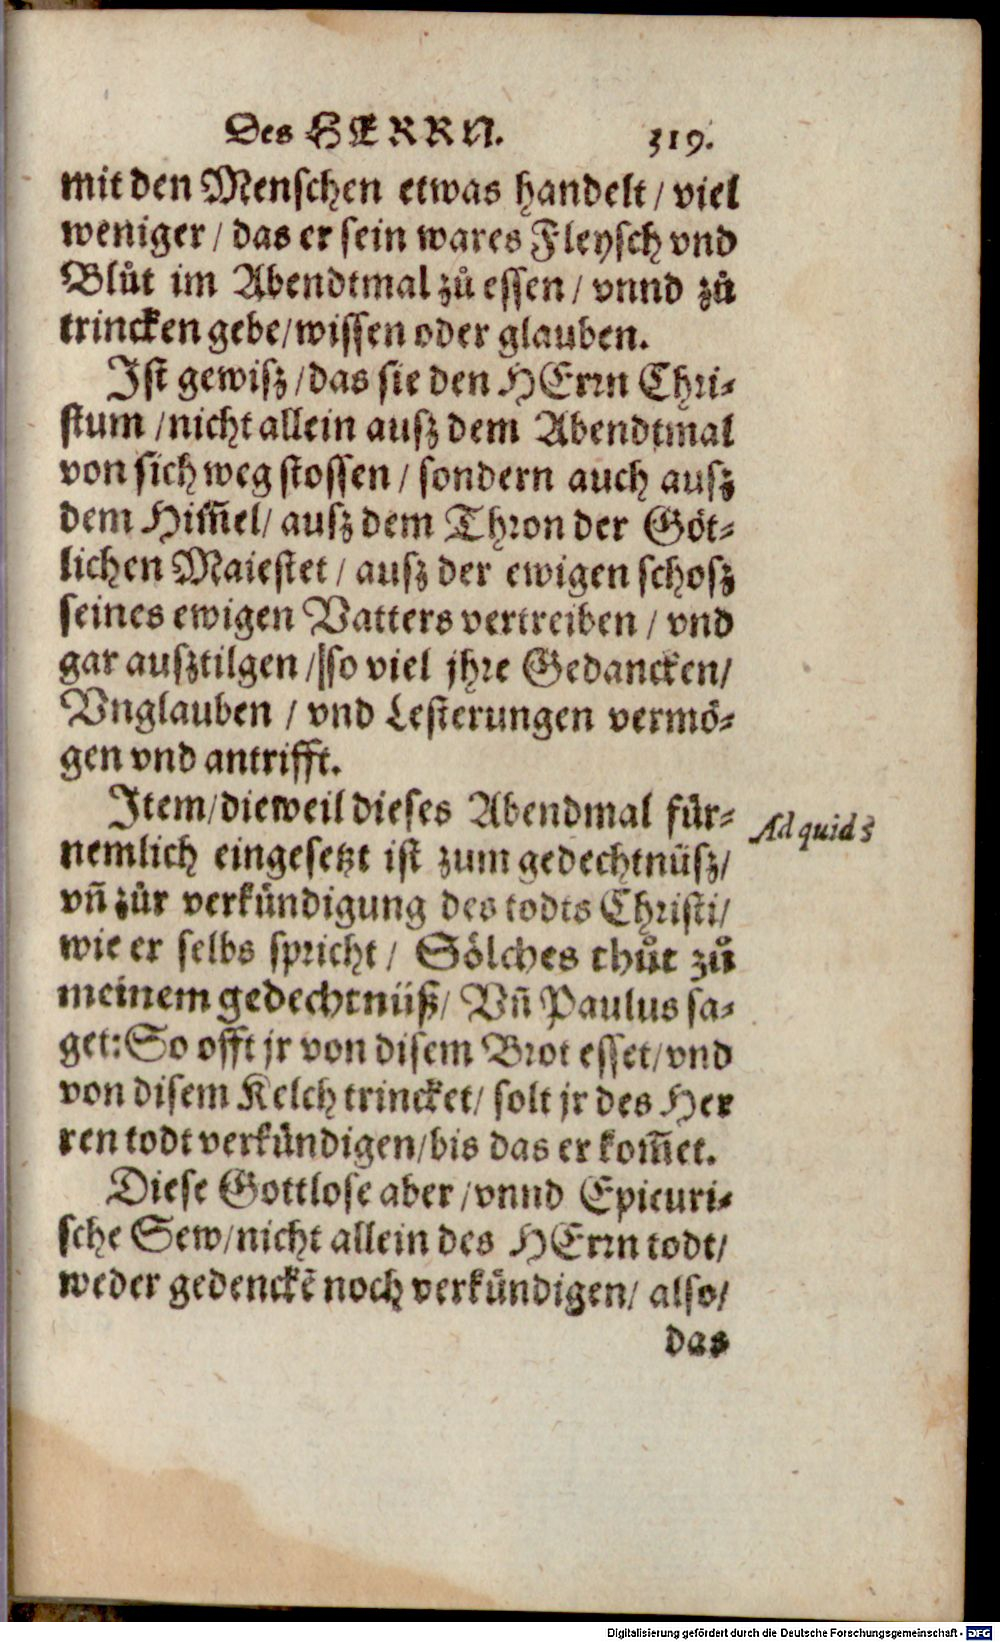 Des HERRN. 319.
mit den Menschen etwas handelt / viel
weniger / das er sein wares Fleysch vnd
Blůt im Abendtmal zů essen / vnnd zů
trincken gebe/wissen oder glauben.
Jst gewisz /das sie den HErrn Chri-
stum /nicht allein ausz dem Abendtmal
von sich weg stossen / sondern auch ausz
dem Him̃el/ ausz dem Thron der Göt-
lichen Maiestet / ausz der ewigen schosz
seines ewigen Vatters vertreiben / vnd
gar ausztilgen /so viel jhre Gedancken/
Vnglauben / vnd Lesterungen vermö-
gen vnd antrifft.
Jtem/dieweil dieses Abendmal für-
Ad quid s̃
nemlich eingesetzt ist zum gedechtnüsz/
vñ zůr verkündigung des todts Christi/
wie er selbs spricht / Sölches thůt zů
meinem gedechtnüß/ Vñ Paulus sa-
get: So offt jr von disem Brot esset/vnd
von disem Kelch trincket/ solt jr des Her
ren todt verkündigen/bis das er kom̃et.
Diese Gottlose aber /vnnd Epicuri-
sche Sew/nicht allein des HErrn todt/
weder gedenckẽ noch verkündigen/ also/
das
Digitalisierung gefördert durch die Deutsche Forschungsgemeinschaft - DFG